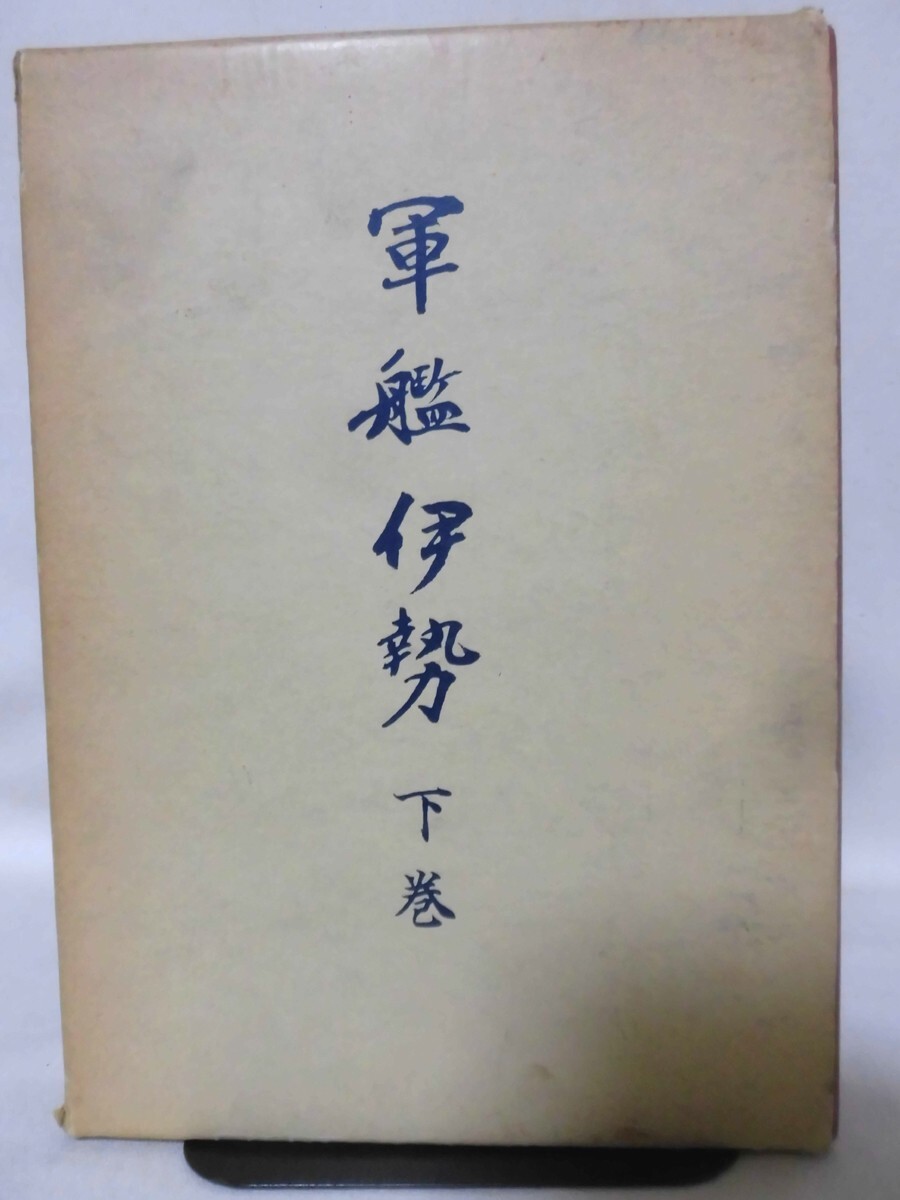 軍艦伊勢 下巻